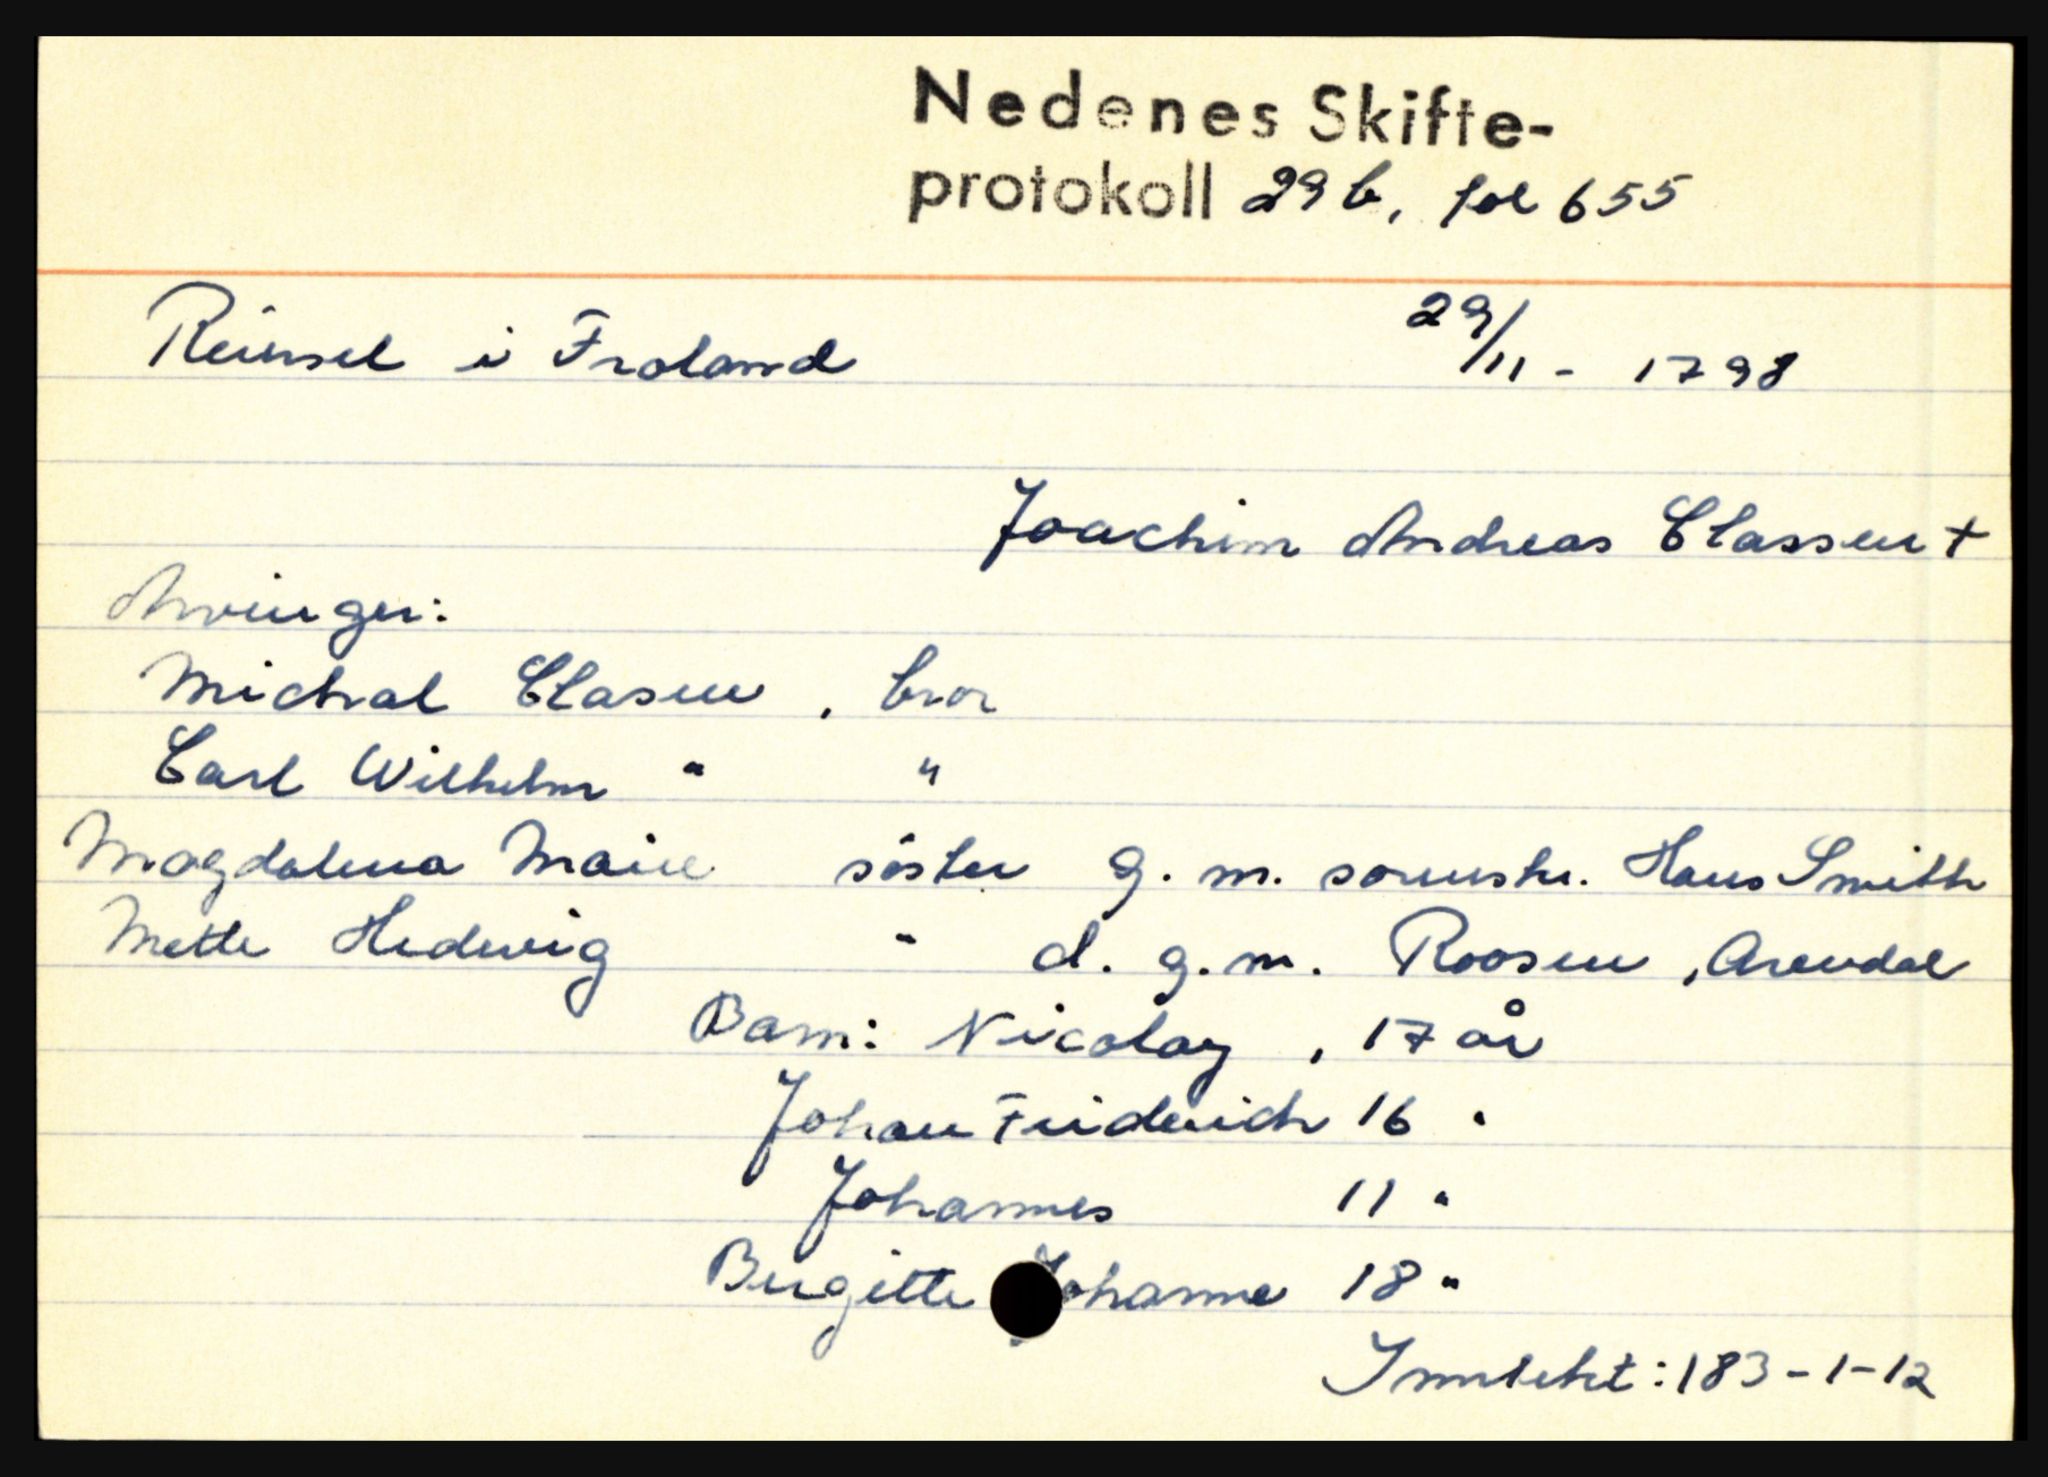 Nedenes Skifte-
protokoll 29 b, fol 655
Reinsel i Froland 29/11 - 1798
Joachim Andreas Classen +
Arvinger:
Michal Clasen , bror
Carl Wilhelm " "
Magdalena Marie söster g. m. sorenskr. Hans Smith
Mette Hedevig " d. g. m. Roosen , Arendal
Barn: Nicolay , 17 år
Johan Friderich 16 "
Johannes 11 "
Birgitte Johanne 18 "
Inntekt: 183-1-12